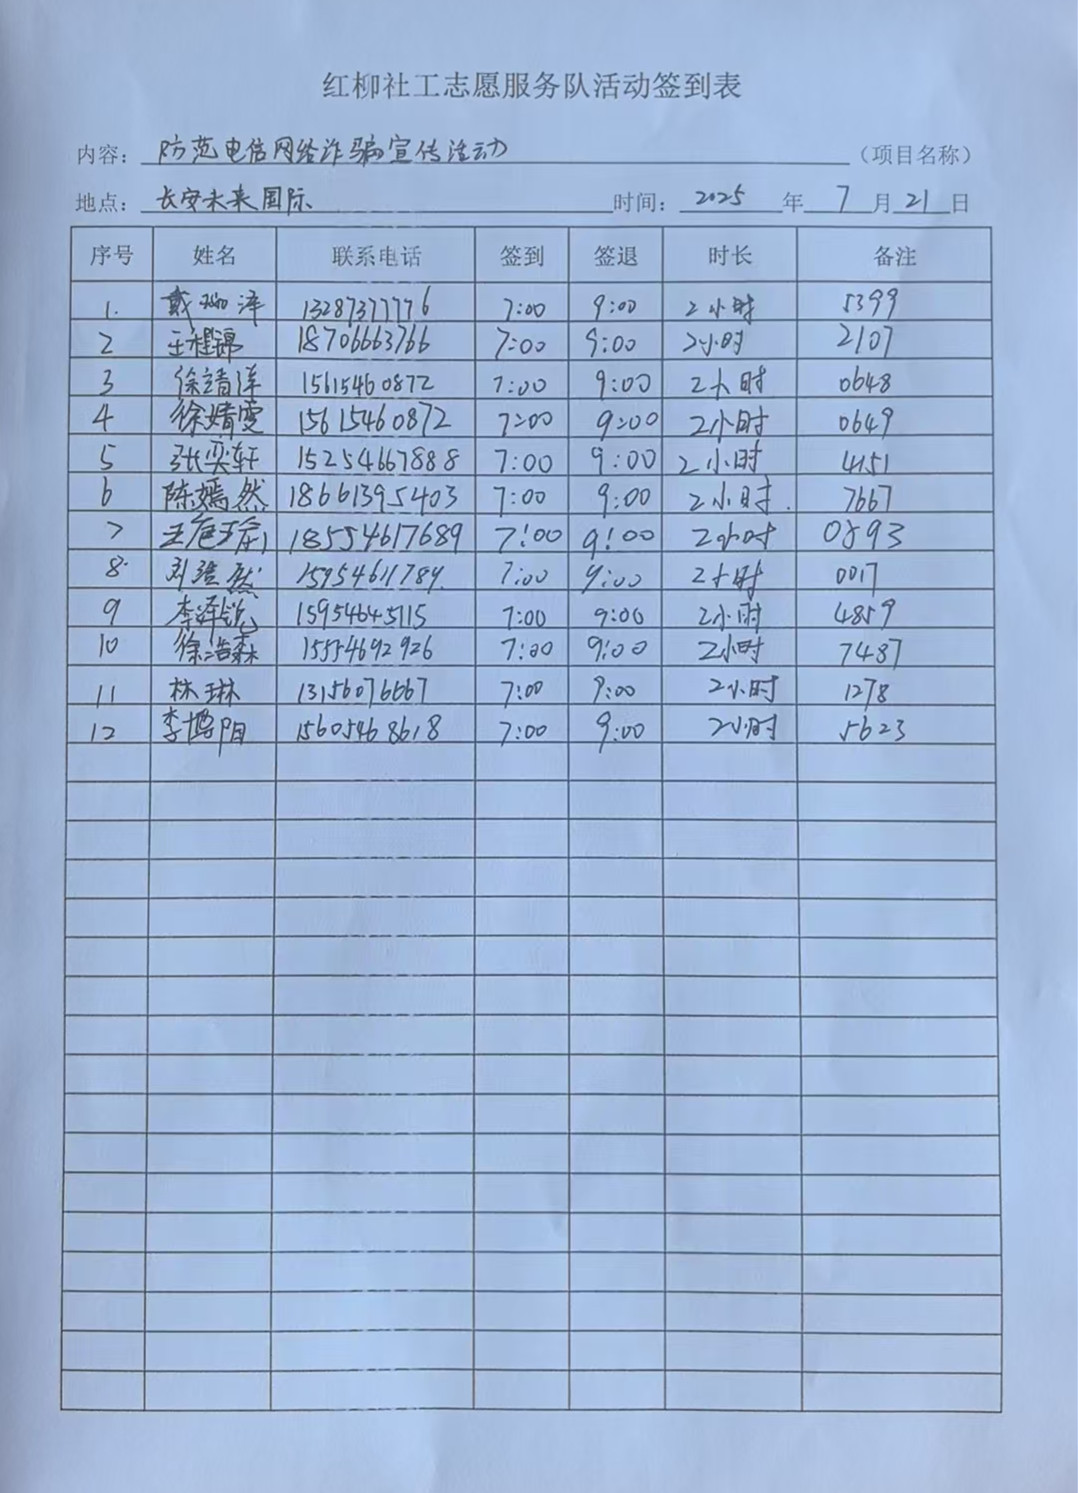 红柳社工志愿服务队活动签到表
内容：防范电信网络诈骗宣传活动（项目名称）
地点：长安未来国际 时间：2025年7月21日
序号 姓名 联系电话 签到 签退 时长 备注
1. 戴 泽 13287377776 7:00 9:00 2小时 5399
2 王程锦 18706663766 7:00 9:00 2小时 2107
3 徐靖 15615460872 7:00 9:00 2小时 0648
4 徐婧雯 15615460872 7:00 9:00 2小时 0649
5 张奕轩 15254667888 7:00 9:00 2小时 4151
6 陈嫣然 18661395403 7:00 9:00 2小时. 7667
7 王 18554617689 7:00 9:00 2小时 0893
8. 刘浩然 15954611789. 7:00 9:00 2小时 0017
9 李泽锐 15954645115 7:00 9:00 2小时 4859
10 徐浩森 15554692926 7:00 9:00 2小时 7487
11 林琳 13156076667 7:00 9:00 2小时 1278
12 李博阳 15605468618 7:00 9:00 2小时 5623